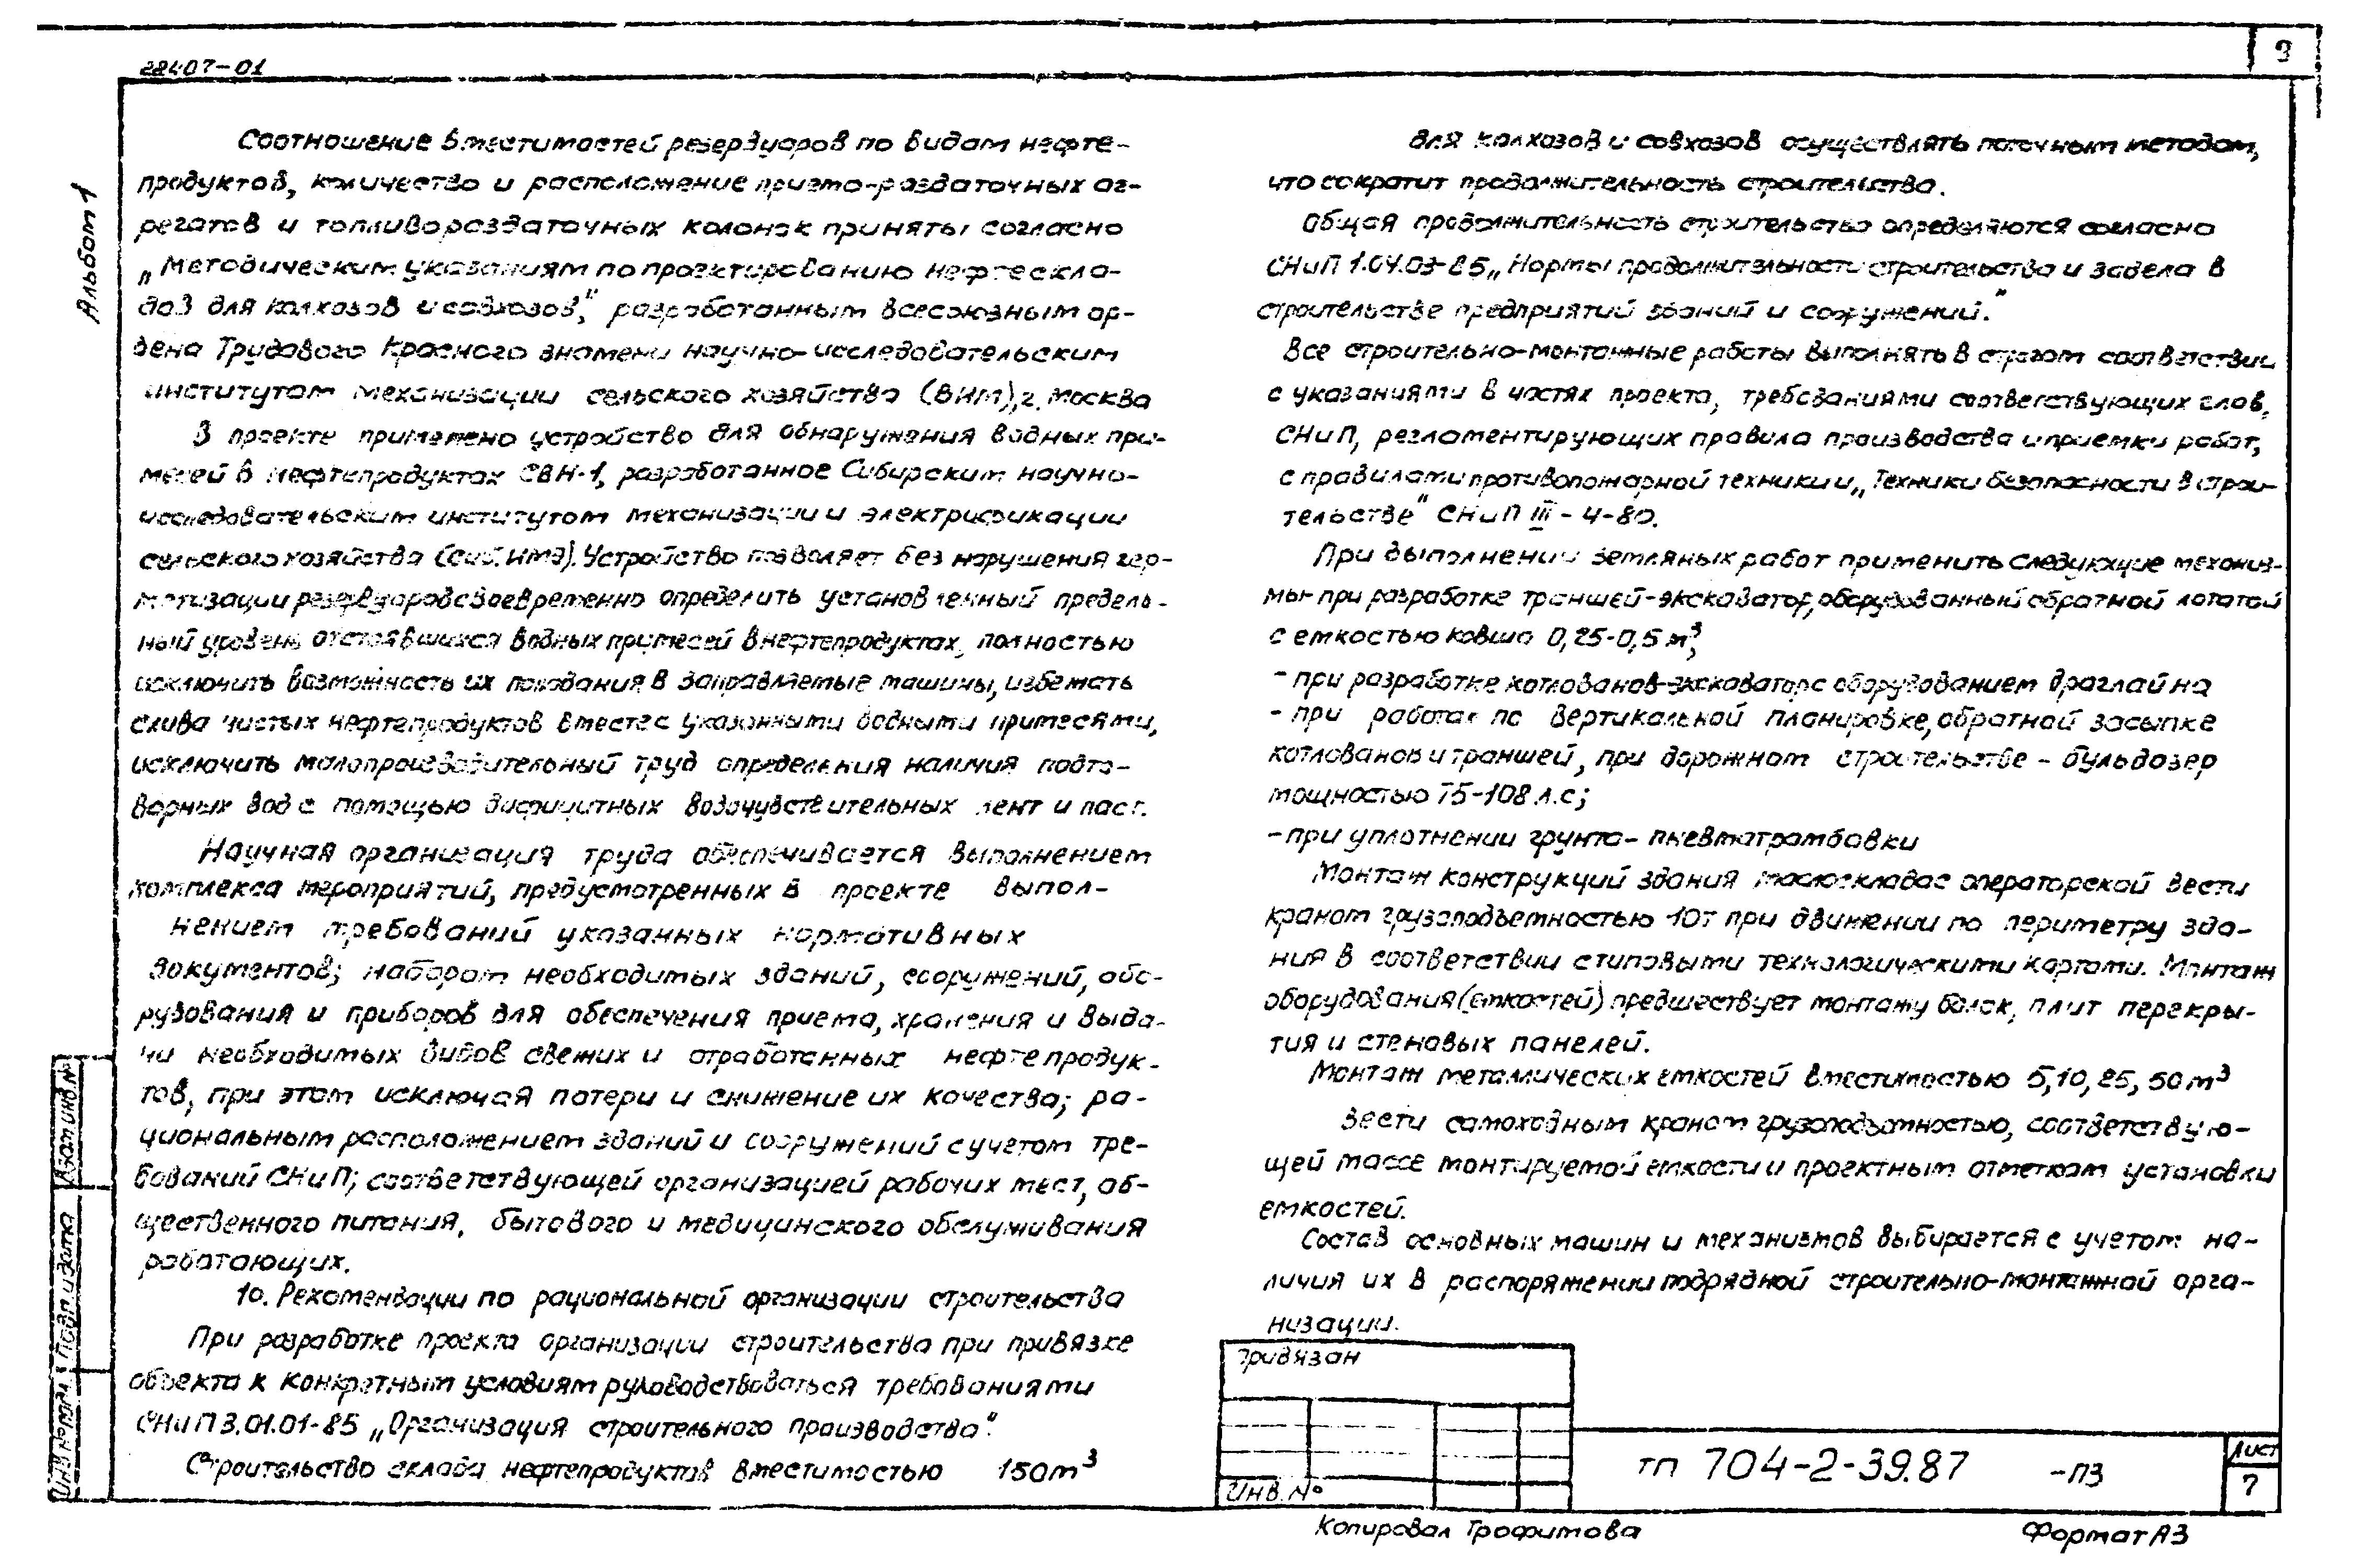 22407-01
9
Альбом 1
Соотношение вместимостей резервуаров по видам нефте-
продуктов, количество и расположение приемо-раздаточных аг-
регатов и топливораздаточных колонок приняты согласно
„Методическим указаниям по проектированию нефтескла-
дов для колхозов и совхозов“, разработанным всесоюзным ор-
дена Трудового Красного знамени научно-исследовательским
институтом механизации сельского хозяйства (ВИМ), г. Москва
В проекте применено устройство для обнаружения водных при-
месей в нефтепродуктах СВН-1, разработанное Сибирским научно-
исследовательским институтом механизации и электрификации
сельского хозяйства (Сиб.ИМЭ). Устройство позволяет без нарушения гер-
метизации резервуаров своевременно определить установленный предель-
ный уровень отстоявшихся водных примесей в нефтепродуктах, полностью
исключить возможность их попадания в заправляемые машины, избежать
слива чистых нефтепродуктов вместе с указанными водными примесями,
исключить малопроизводительный труд определения наличия подто-
варных вод с помощью дифицитных водочувствительных лент и паст.
Научная организация труда обеспечивается выполнением
комплекса мероприятий, предусмотренных в проекте выпол-
нением требований указанных нормативных
документов; набором необходимых зданий, сооружений, обо-
рудования и приборов для обеспечения приема, хранения и выда-
чи необходимых видов свежих и отработанных нефтепродук-
тов, при этом исключая потери и снижение их качества; ра-
циональным расположением зданий и сооружений с учетом тре-
бований СНиП; соответствующей организацией рабочих мест, об-
щественного питания, бытового и медицинского обслуживания
работающих.
10. Рекомендации по рациональной организации строительства
При разработке проекта организации строительства при привязке
объекта к конкретным условиям руководствоваться требованиями
СНиП 3.01.01-85 „Организация строительного производства“.
Строительство склада нефтепродуктов вместимостью 150м³
для колхозов и совхозов осуществлять поточным методом,
что сократит продолжительность строительства.
Общая продолжительность строительства определяются согласно
СНиП 1.04.03-85 „Нормы продолжительности строительства и задела в
строительстве предприятий зданий и сооружений.“
Все строительно-монтажные работы выполнять в строгом соответствии
с указаниями в частях проекта, требованиями соответствующих глав,
СНиП, регламентирующих правила производства и приемки работ,
с правилами противопожарной техники и „Техники безопасности в строи-
тельстве“ СНиП III-4-80.
При выполнении земляных работ применить следующие механиз-
мы- при разработке траншей-экскаватор, оборудованный обратной лопатой
с емкостью ковша 0,25-0,5 м³,
- при разработке котлованов-экскаваторс оборудованием драглайна
- при работах по вертикальной планировке, обратной засыпке
котлованов и траншей, при дорожном строительстве - бульдозер
мощностью 75-108 л.с;
- при уплотнении грунта - пневматрамбовки
Монтаж конструкций здания маслоскладас операторской вести
краном грузоподъемностью 10т при движении по периметру зда-
ния в соответствии с типовыми технологическими картами. Монтаж
оборудования (емкостей) предшествует монтажу балок, плит перекры-
тия и стеновых панелей.
Монтаж металлических емкостей вместимостью 5,10,25,50м³
вести самоходным краном грузоподъемностью, соответствую-
щей массе монтируемой емкости и проектным отметкам установки
емкостей.
Состав основных машин и механизмов выбирается с учетом на-
личия их в распоряжении подрядной строительно-монтажной орга-
низации.
Привязан
Инв. №
тп 704-2-39.87 -ПЗ
Лист
7
Взам инв.№
Подп. и дата
Инв.№ подл.
Копировал Трофимова
Формат А3